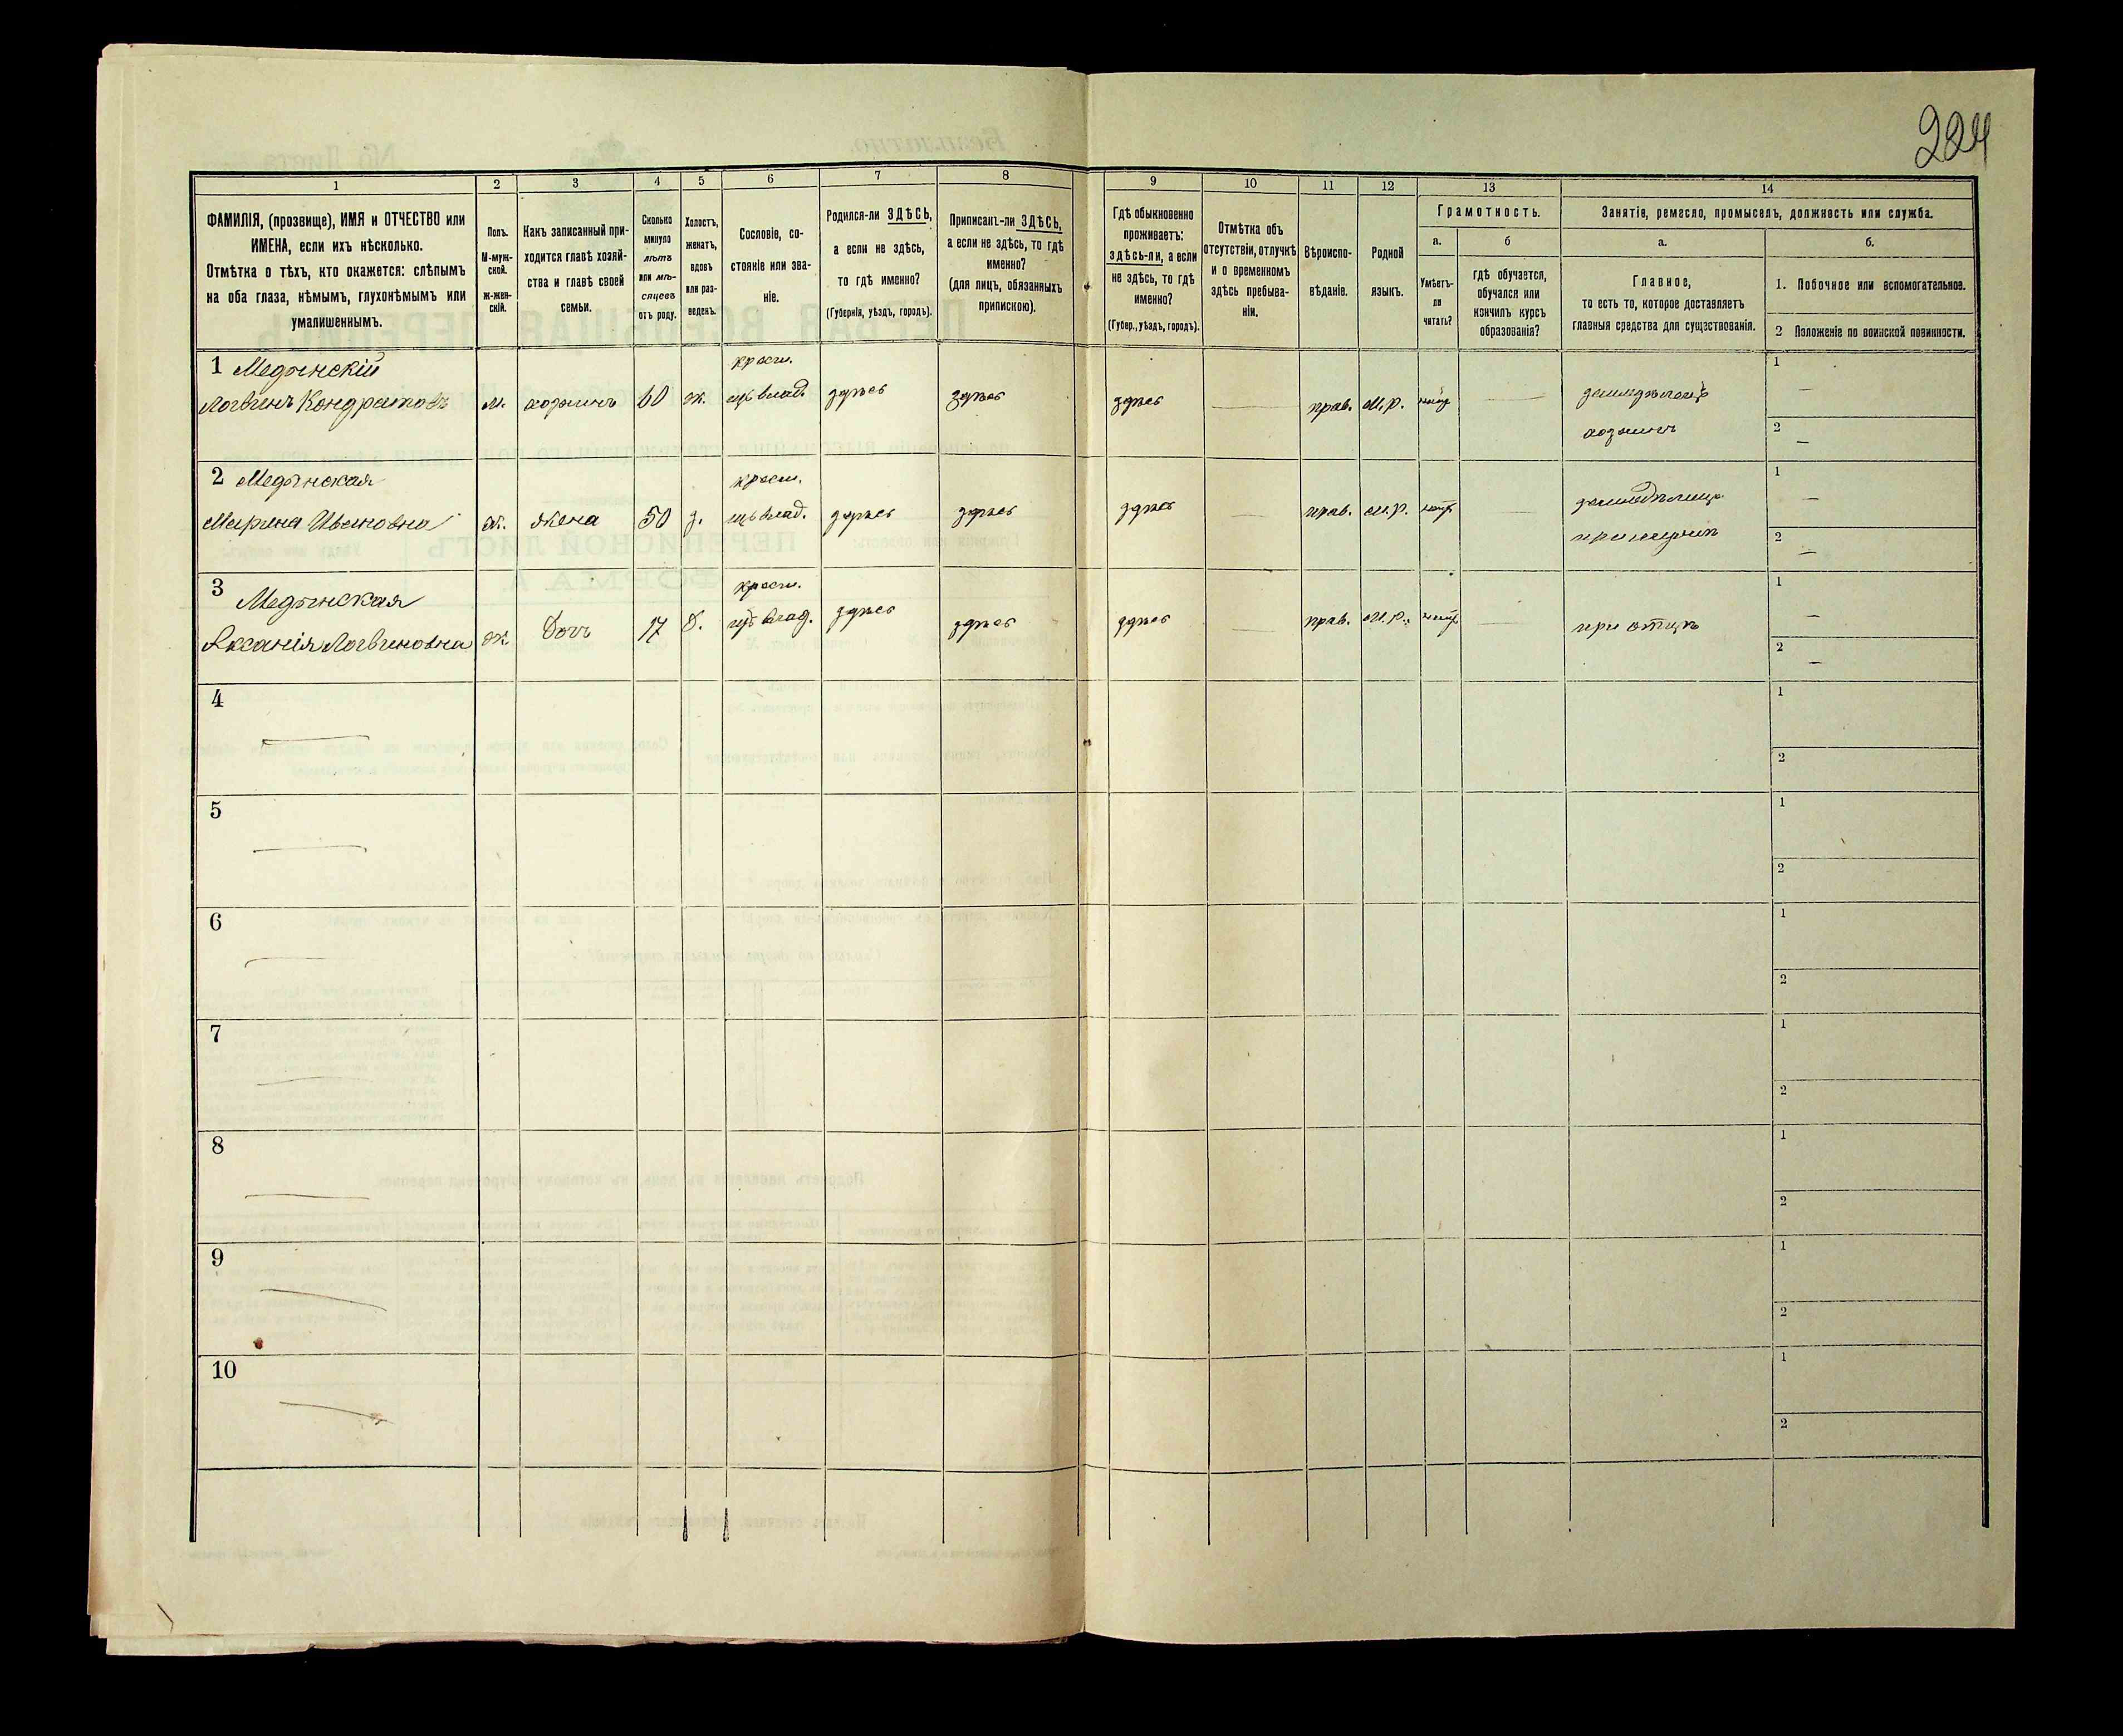 224
1
2
3
4
5
6
7
8
9
10
11
12
13
14
ФАМИЛІЯ, (прозвище), ИМЯ и ОТЧЕСТВО или
ИМЕНА, если ихъ нѣсколько.
Отмѣтка о тѣхъ, кто окажется: слѣпымъ
на оба глаза, нѣмымъ, глухонѣмымъ или
умалишеннымъ.
Полъ.
М-муж-
ской.
ж-жен-
скій.
Какъ записанный при-
ходится главѣ хозяй-
ства и главѣ своей
семьи.
Сколько
минуло
лѣтъ
или мѣ-
сяцевъ
отъ роду.
Холостъ,
женатъ,
вдовъ
или раз-
веденъ.
Сословіе, со-
стояніе или зва-
ніе.
Родился-ли ЗДѢСЬ,
а если не здѣсь,
то гдѣ именно?
(Губернія, уѣздъ, городъ).
Приписанъ-ли ЗДѢСЬ,
а если не здѣсь, то гдѣ
именно?
(для лицъ, обязанныхъ
припискою).
Гдѣ обыкновенно
проживаетъ:
здѣсь-ли, а если
не здѣсь, то гдѣ
именно?
(Губер., уѣздъ, городъ).
Отмѣтка объ
отсутствіи, отлучкѣ
и о временномъ
здѣсь пребыва-
ніи.
Вѣроиспо-
вѣданіе.
Родной
языкъ.
Грамотность.
а.
Умѣетъ-
ли
читать?
б
гдѣ обучается,
обучался или
кончилъ курсъ
образованія?
Занятіе, ремесло, промыселъ, должность или служба.
а.
Главное,
то есть то, которое доставляетъ
главныя средства для существованія.
б.
1. Побочное или вспомогательное.
2 Положеніе по воинской повинности.
1 Медынскій
Логвинъ Кондратовъ
м.
хозяинъ
60
ж.
крест.
изъ влад.
здѣсь
здѣсь
здѣсь
—
прав.
м.р.
—
хозяинъ
1
—
2
—
2 Медынская
Марина Ивановна
ж.
жена
50
з.
крест.
изъ влад.
здѣсь
здѣсь
здѣсь
—
прав.
м.р.
—
1
—
2
—
3 Медынская
Аксанія Логвиновна
ж.
Дочь
17
д.
крест.
изъ влад.
здѣсь
здѣсь
здѣсь
—
прав.
м.р.
—
при отцѣ
1
—
2
—
4
—
1
2
5
—
1
2
6
—
1
2
7
—
1
2
8
—
1
2
9
—
1
2
10
—
1
2